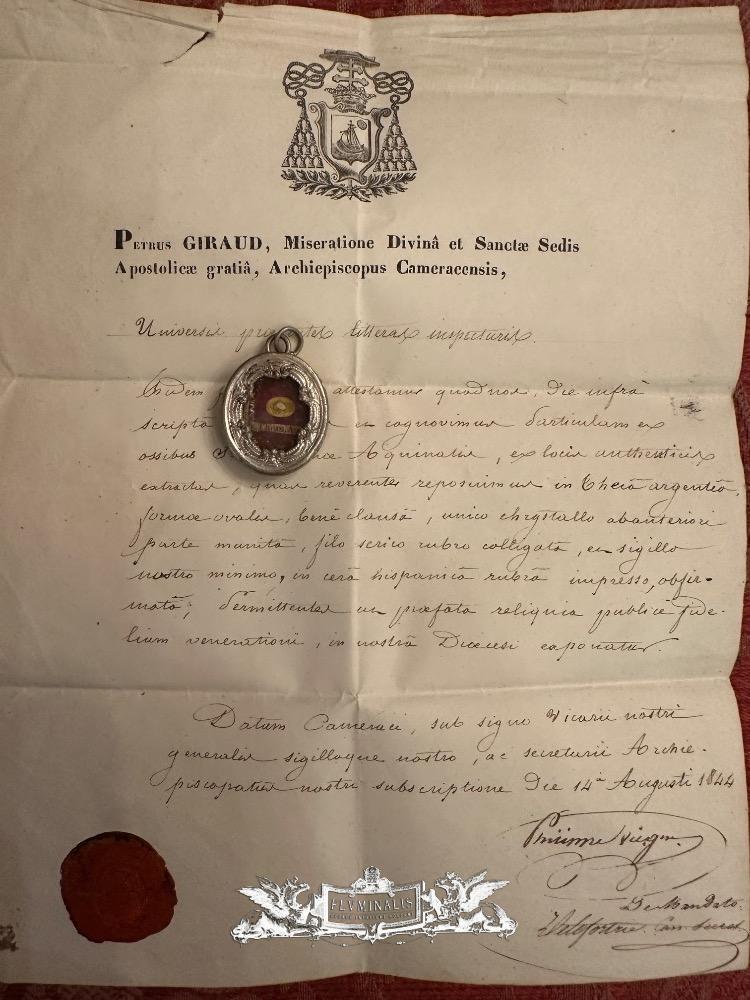 PETRUS GIRAUD, Miseratione Divinâ et Sanctæ Sedis
Apostolicæ gratiâ, Archiepiscopus Cameracensis,
Universis litteras inspecturis.
Fidem attestamur quod nos, die infrà
scripta cognovimus Particulam ex
ossibus Aquinatis, ex locis authenticis
extractas, quas reverenter reposuimus in Thecâ argenteâ,
formæ ovalis, benè clausâ, unico chrystallo ab anteriori
parte munitâ, filo serico rubro colligatâ, et sigillo
nostro minimo, in cerâ hispanicâ rubrâ impresso, obfir-
matâ; Permittentes ut præfata reliquia publicæ fide-
lium venerationi, in nostrâ Diœcesi exponatur.
Datum Cameraci, sub signo Vicarii nostri
generalis sigilloque nostro, ac secretarii Archie-
piscopatus nostri subscriptione Die 14â Augusti 1844
De Mandato
FLVMINALIS